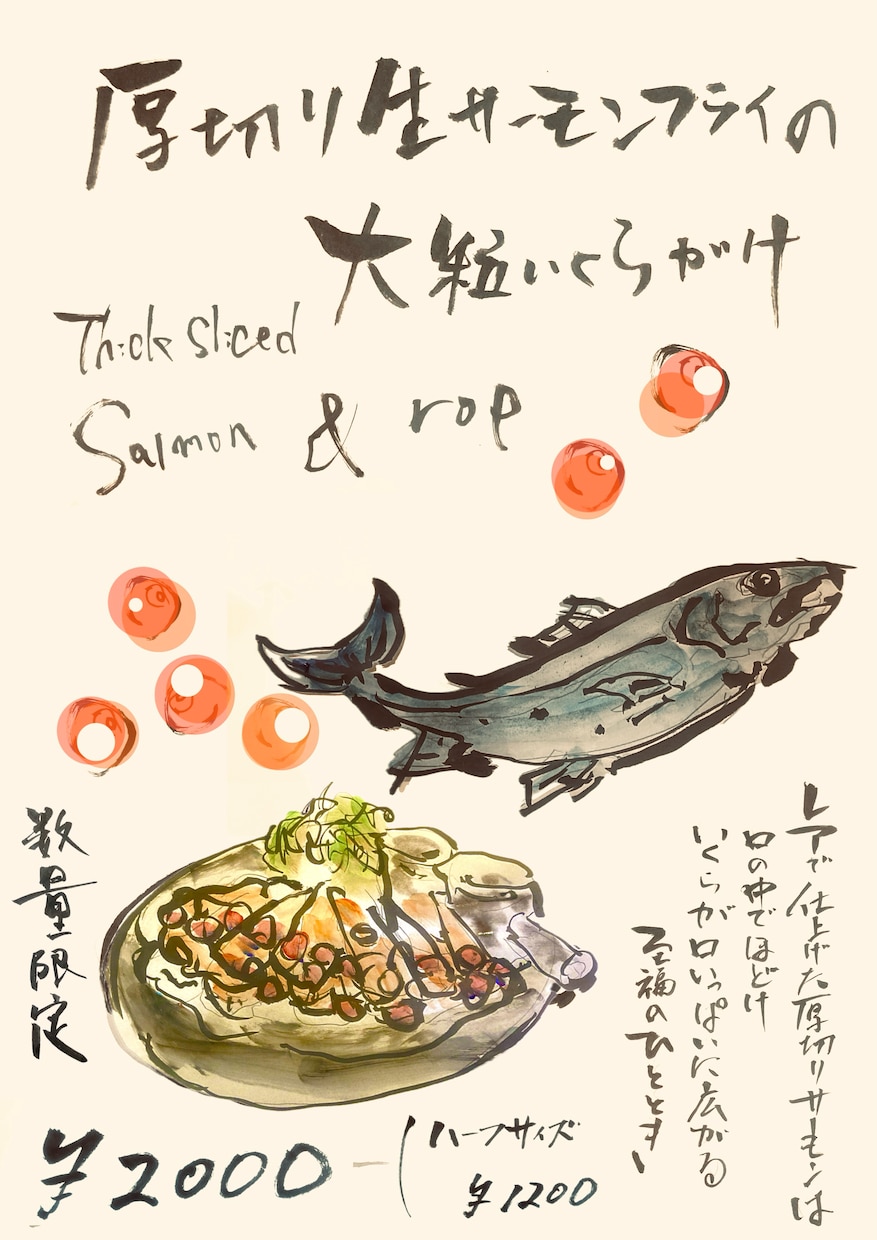 厚切り生サーモンフライの
大粒いくらがけ
Thick sliced
Salmon & rop
レアで仕上げた厚切りサーモンは
口の中でほどけ
いくらが口いっぱいに広がる
至福のひととき
数量限定
¥2000-
(ハーフサイズ
¥1200